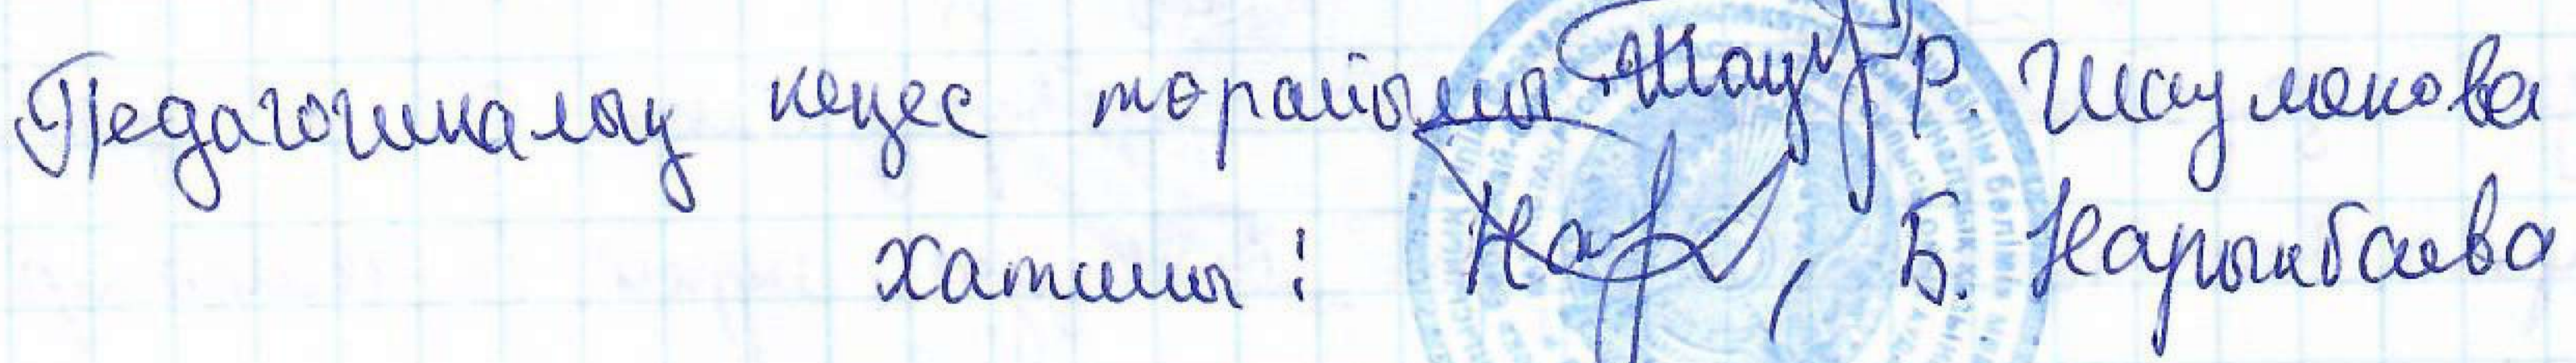 Педагогикалық кеңес төрайымы Шау Р. Шауменова
Хатшы: Нар, Б. Нарынбаева